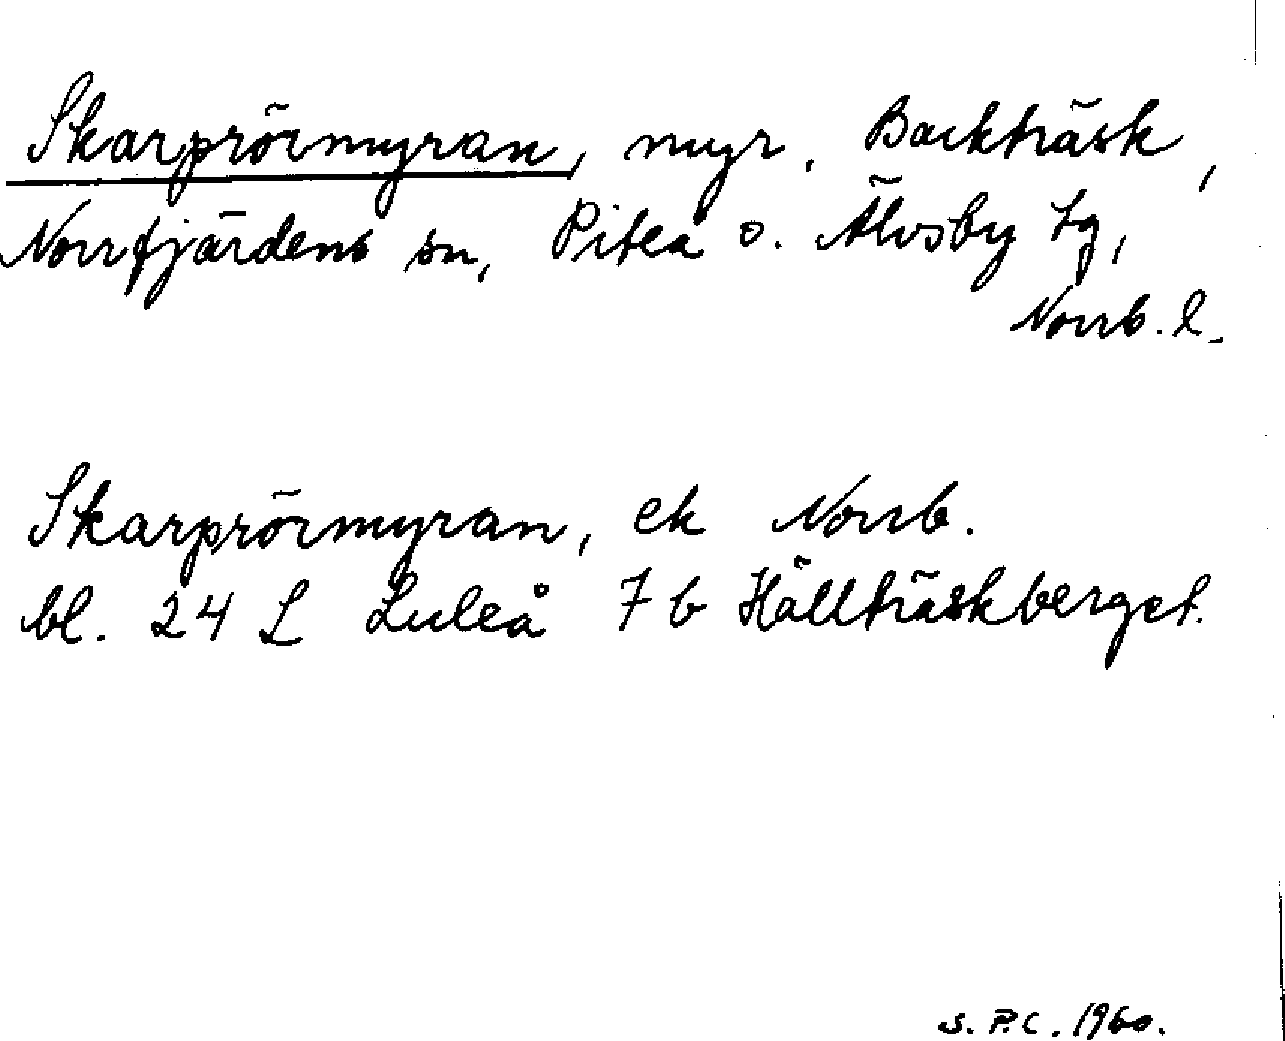 Skarprörmyran, myr, Backträsk,
Norrfjärdens sn, Piteå o. Älvsby tg,
Norrb. l.
Skarprörmyran, ek Norrb.
bl. 24 L Luleå 7 b Hällträskberget.
S. P.C. 1960.